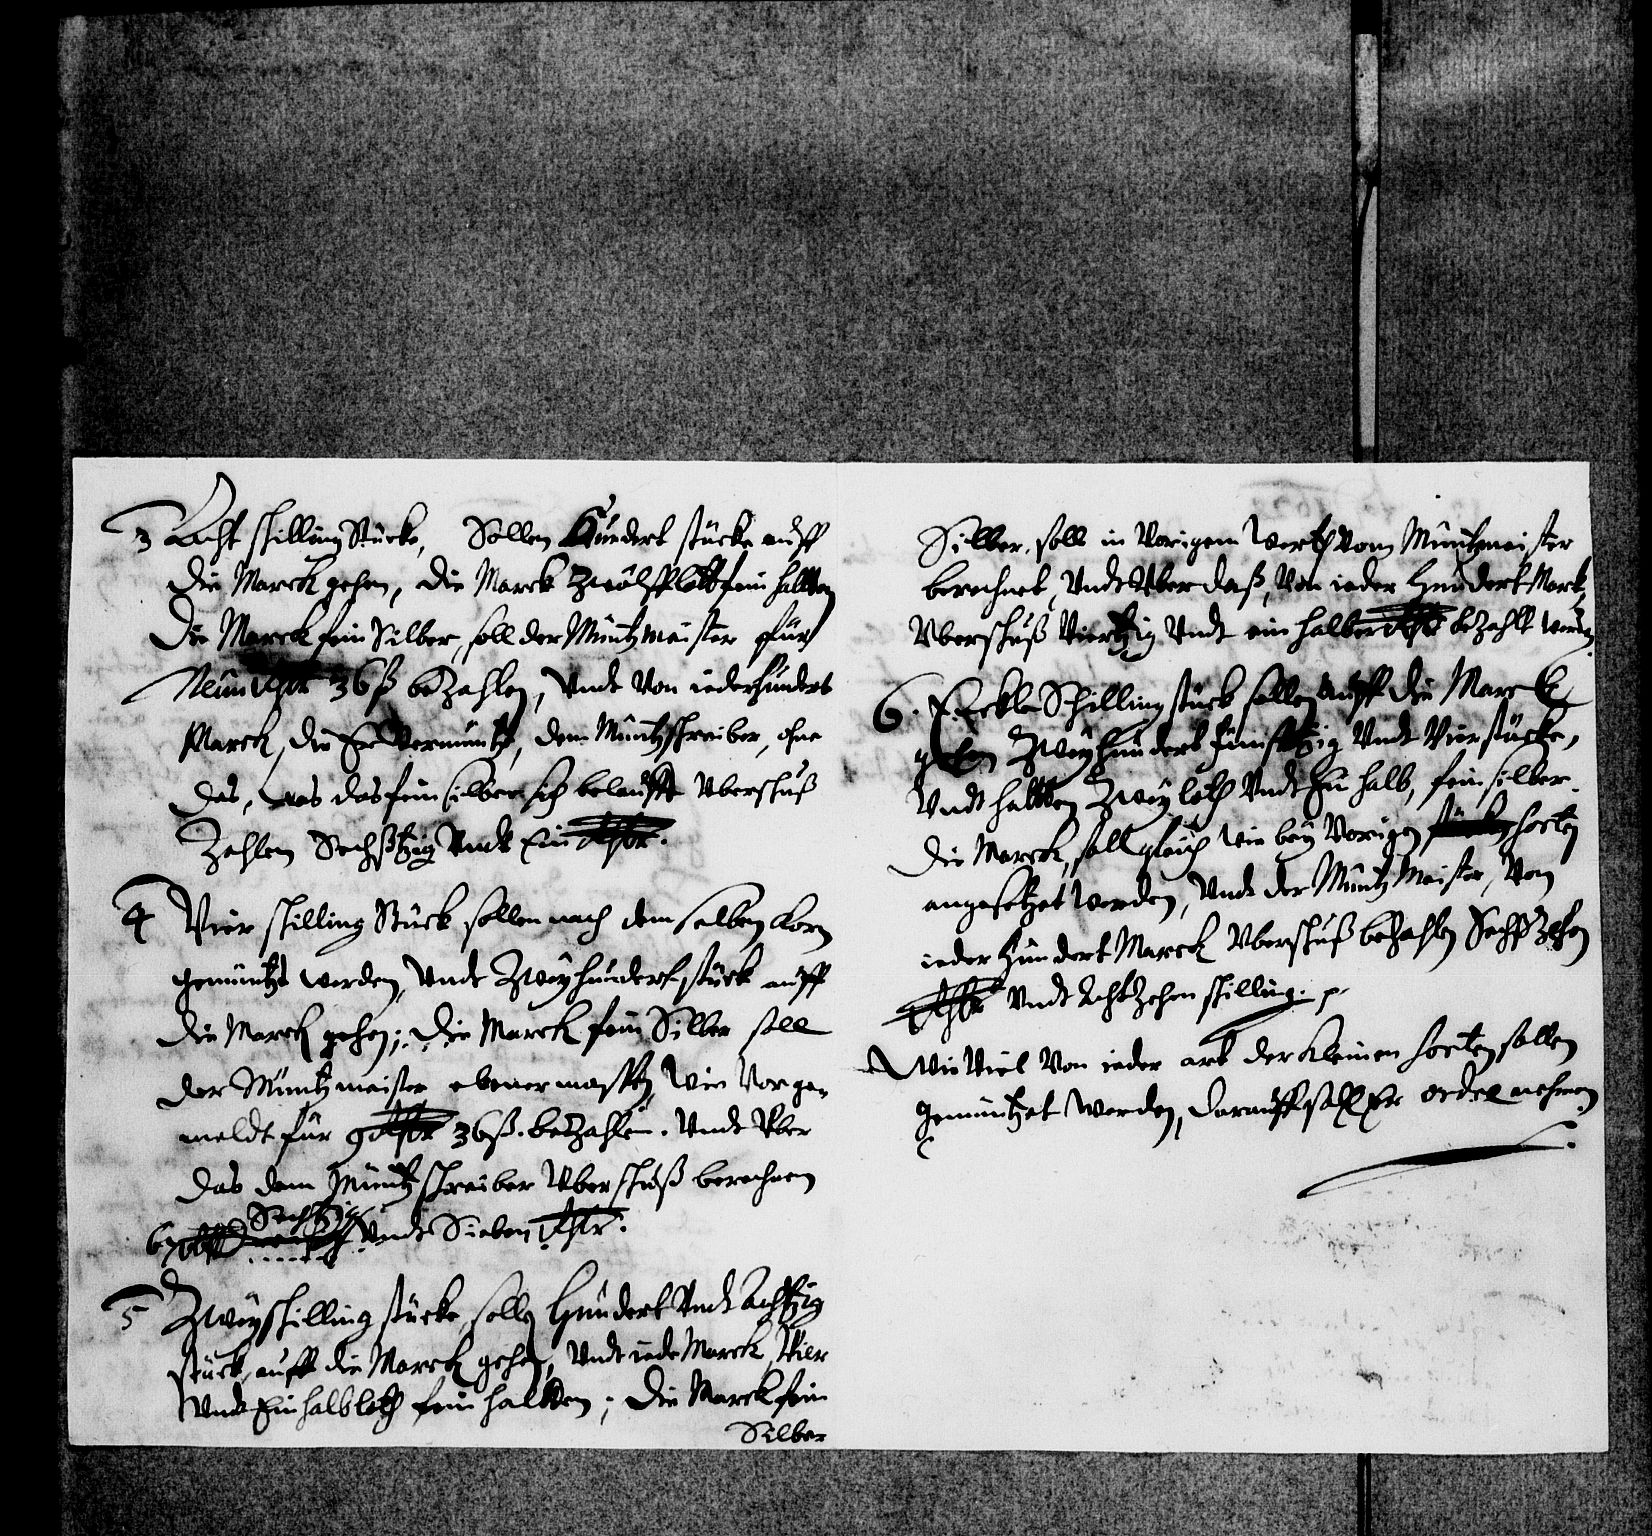 3 Acht schilling Stücke, Sollen Hundert stücke auff
die Marck gehen, die Marck zwölff lott fein haltten
Die Marck fein Silber, soll der Müntzmeister für
Neun Rthlr 36 ß bezahlen, Vndt Von ieder hundert
Marck, die Er Vermüntzt, dem Müntzschreiber, ohne
das, was das fein silber sich belaufft Vberschuß
Zahlen Sechßtzig Vndt Ein Rthlr.
4 Vier schilling Stück sollen nach dem selben Korn
gemüntzt werden, Vndt Zweyhundert stück auff
die Marck gehen; Die Marck fein Silber soll
der Müntzmeister ebener massen, wie Vorge-
meldt für 9 Rthlr 36 ß. bezahlen. Vndt Vber
das dem Müntzschreiber Vberschuß berechnen
Sechtzig
67 Vndt Sieben Rthlr.
5 Zweyschilling stücke, sollen Hundert Vndt Achtzig
stück, auff die Marck gehen, Vndt iede Marck, Vier
Vndt Ein halb loth fein haltten; Die Marck fein
Silber
Silber, soll in Vorigem werth Vom Müntzmeister
berechnet, Vndt Vber daß, Von ieder Hundert Marck,
Vberschuß Viertzig Vndt ein halber Rthlr bezahlt werden
6. Schilling stück sollen auff die Marck
gehen Zweyhundert fünfftzig Vndt Vier stücke,
Vndt haltten Zwey loth Vndt Ein halb, fein silber.
Die Marck, soll gleich wie bey Vorigen stücken sorten
angesetzet werden, Vndt der Müntz Meister, Von
ieder Hundert Marck Vberschuß bezahlen Sechßzehen
Rthlr Vndt Achtzehen schilling.
Wie Viel Von ieder art der kleinen sorten sollen
gemüntzet werden, darauff soll Er order nehmen